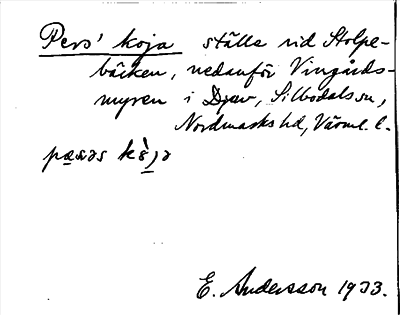 Pers' koja ställe vid Stolpe-
bäcken, nedanför Vingårds-
myren i Djuv, Silbodals sn,
Nordmarks hd, Värml. l.
E. Andersson 1933.